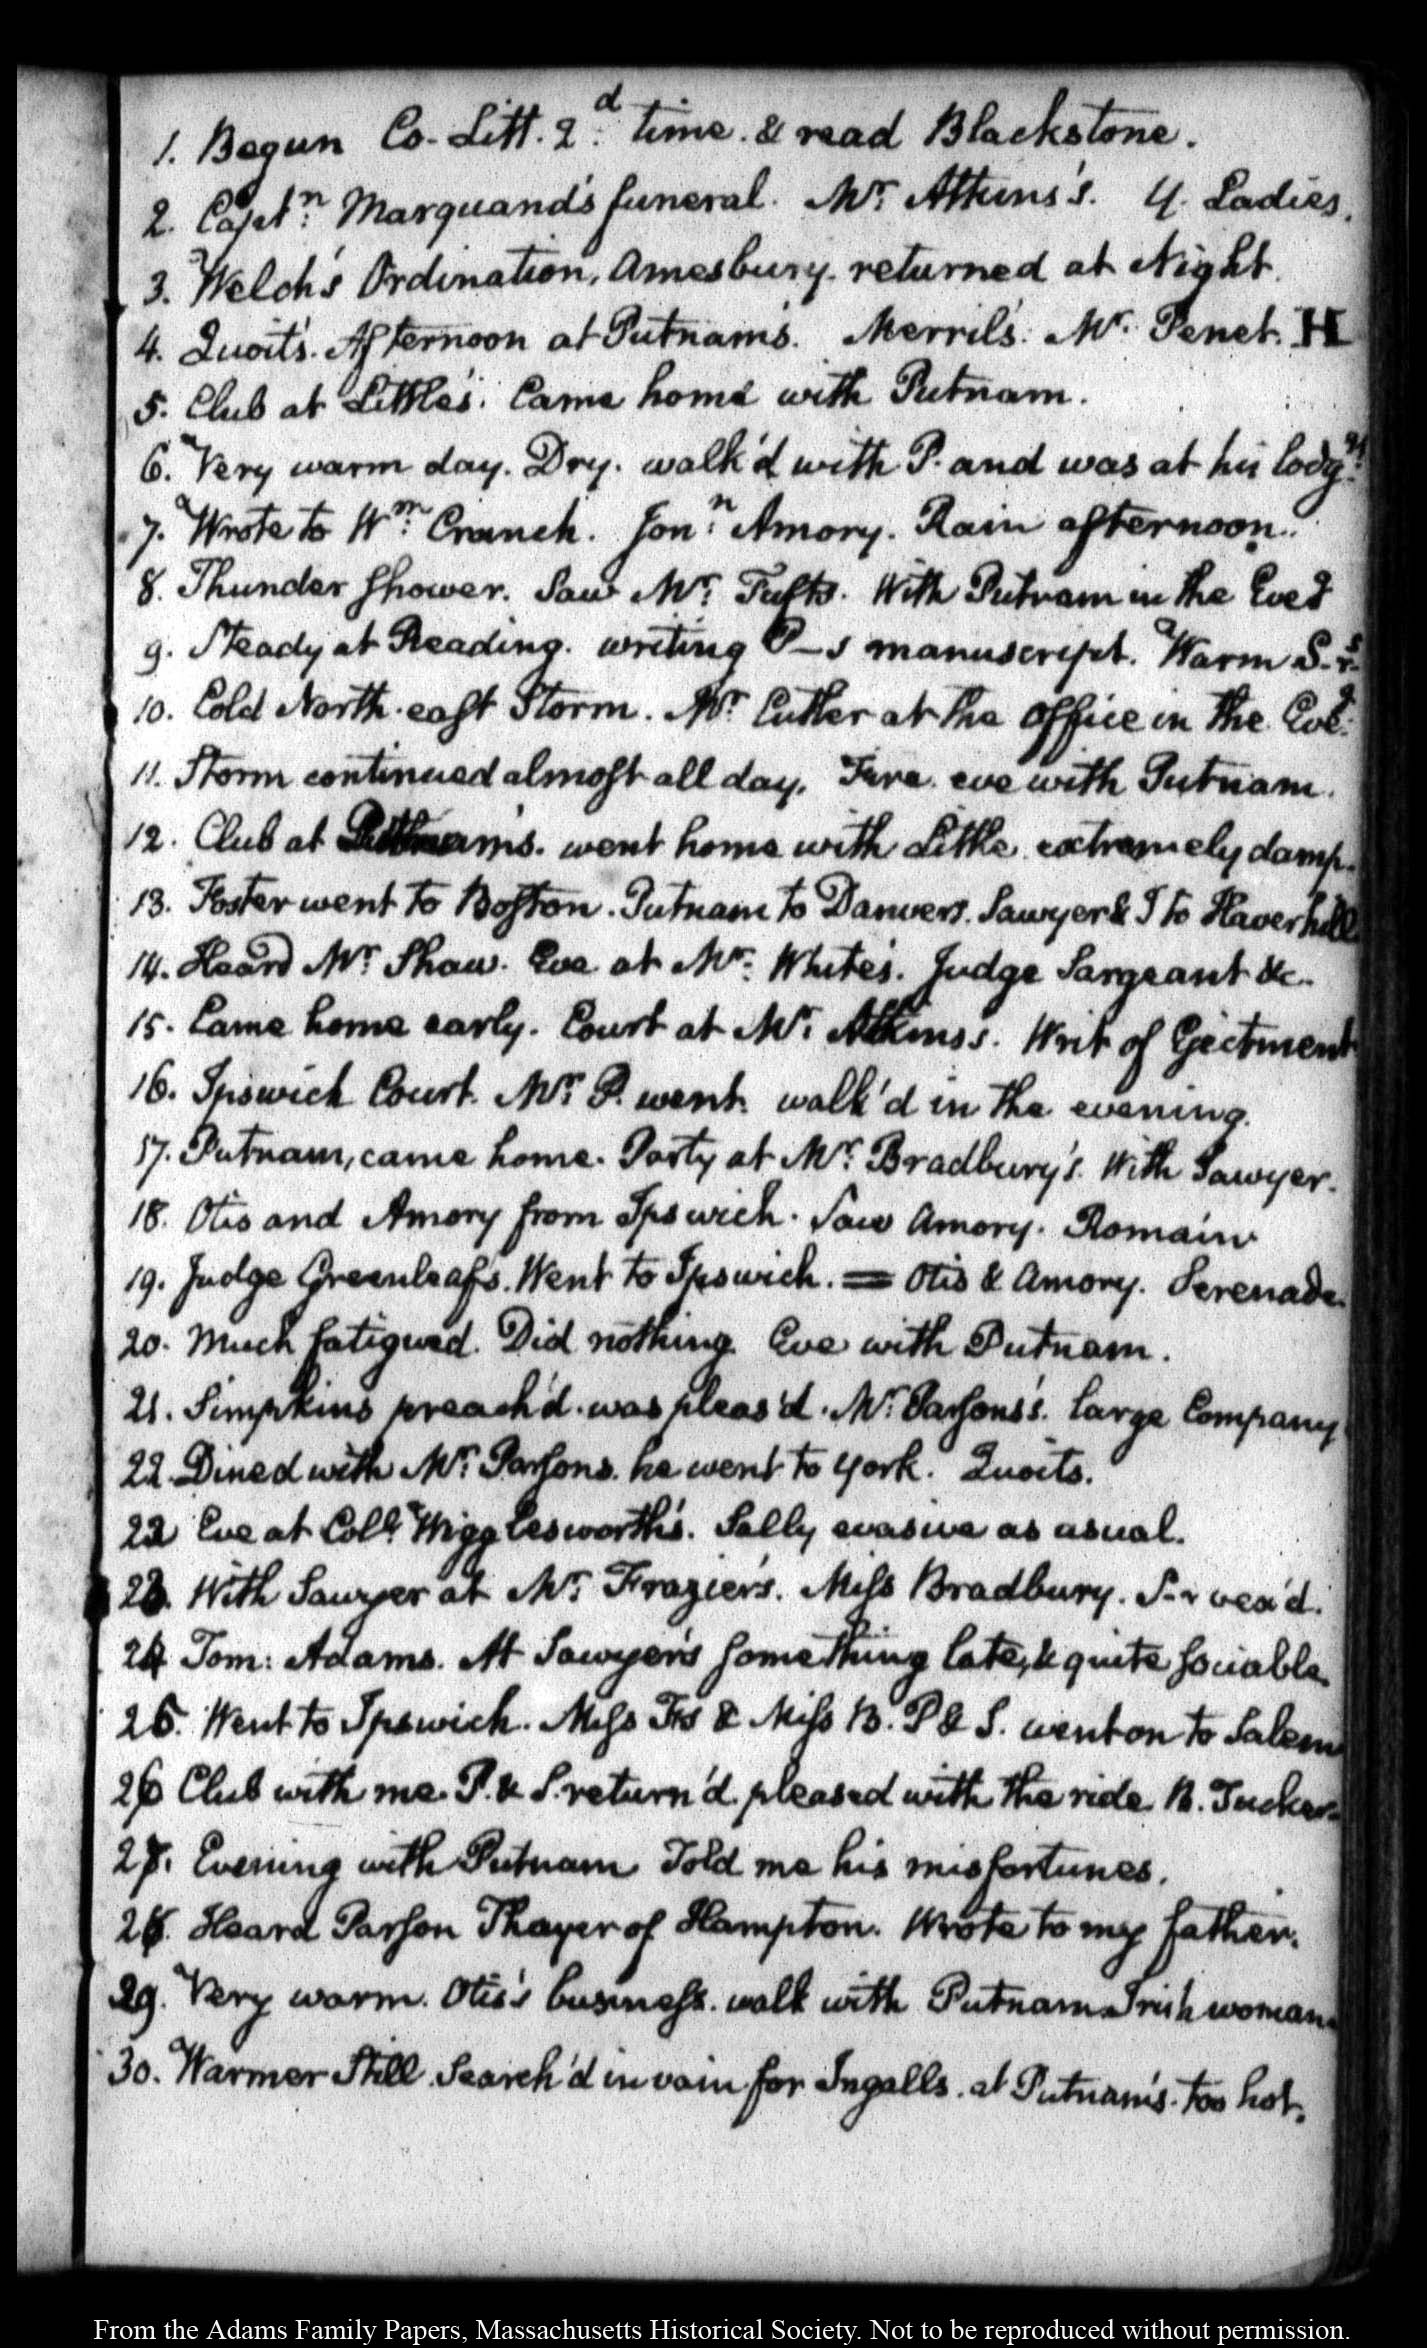 1. Begun Co-Litt. 2.d time. & read Blackstone.
2. Captn: Marquand's funeral. Mr. Atkins's. Y. Ladies.
3. Welch's Ordination, Amesbury. returned at Night.
4. Quoits. Afternoon at Putnam's. Merril's. Mr. Penet. H
5. Club at Little's. Came home with Putnam.
6. Very warm day. Dry. walk'd with P. and was at his lodgs.
7. Wrote to Wm: Cranch. Jonn: Amory. Rain afternoon.
8. Thunder shower. Saw Mr. Tufts. With Putnam in the Eveg
9. Steady at Reading. writing P—s manuscript. Warm
10. Cold North-east Storm. Mr. Cutler at the office in the Eveg.
11. Storm continued almost all day. Fire. eve with Putnam.
12. Club at Putnam's. went home with Little. extremely damp.
13. Foster went to Boston. Putnam to Danvers. Sawyer & I to Haverhill
14. Heard Mr. Shaw. Eve at Mr. White's. Judge Sargeant &c.
15. Came home early. Court at Mr. Atkins's. Writ of Ejectment
16. Ipswich Court. Mr. P. went. walk'd in the evening.
17. Putnam, came home. Party at Mr. Bradbury's. With Sawyer.
18. Otis and Amory from Ipswich. Saw Amory. Romain
19. Judge Greenleaf's. Went to Ipswich. = Otis & Amory. Serenade.
20. Much fatigued. Did nothing. Eve with Putnam.
21. Simpkins preach'd. was pleas'd. Mr. Parsons's. large Company
22. Dined with Mr. Parsons. he went to York. Quoits.
22 Eve at Coll: Wigglesworth's. Sally evasive as usual.
23. With Sawyer at Mr. Frazier's. Miss Bradbury. S—r vex'd.
24 Tom: Adams. At Sawyer's something late, & quite sociable.
25. Went to Ipswich. Miss Frs & Miss B. P & S. went on to Salem
26 Club with me. P. & S. return'd. pleased with the ride. B. Tucker.
27. Evening with Putnam. Told me his misfortunes.
28. Heard Parson Thayer of Hampton. Wrote to my father.
29. Very warm. Otis's business. walk with Putnam. Irish woman.
30. Warmer Still. Search'd in vain for Ingalls. at Putnam's. too hot.
From the Adams Family Papers, Massachusetts Historical Society. Not to be reproduced without permission.